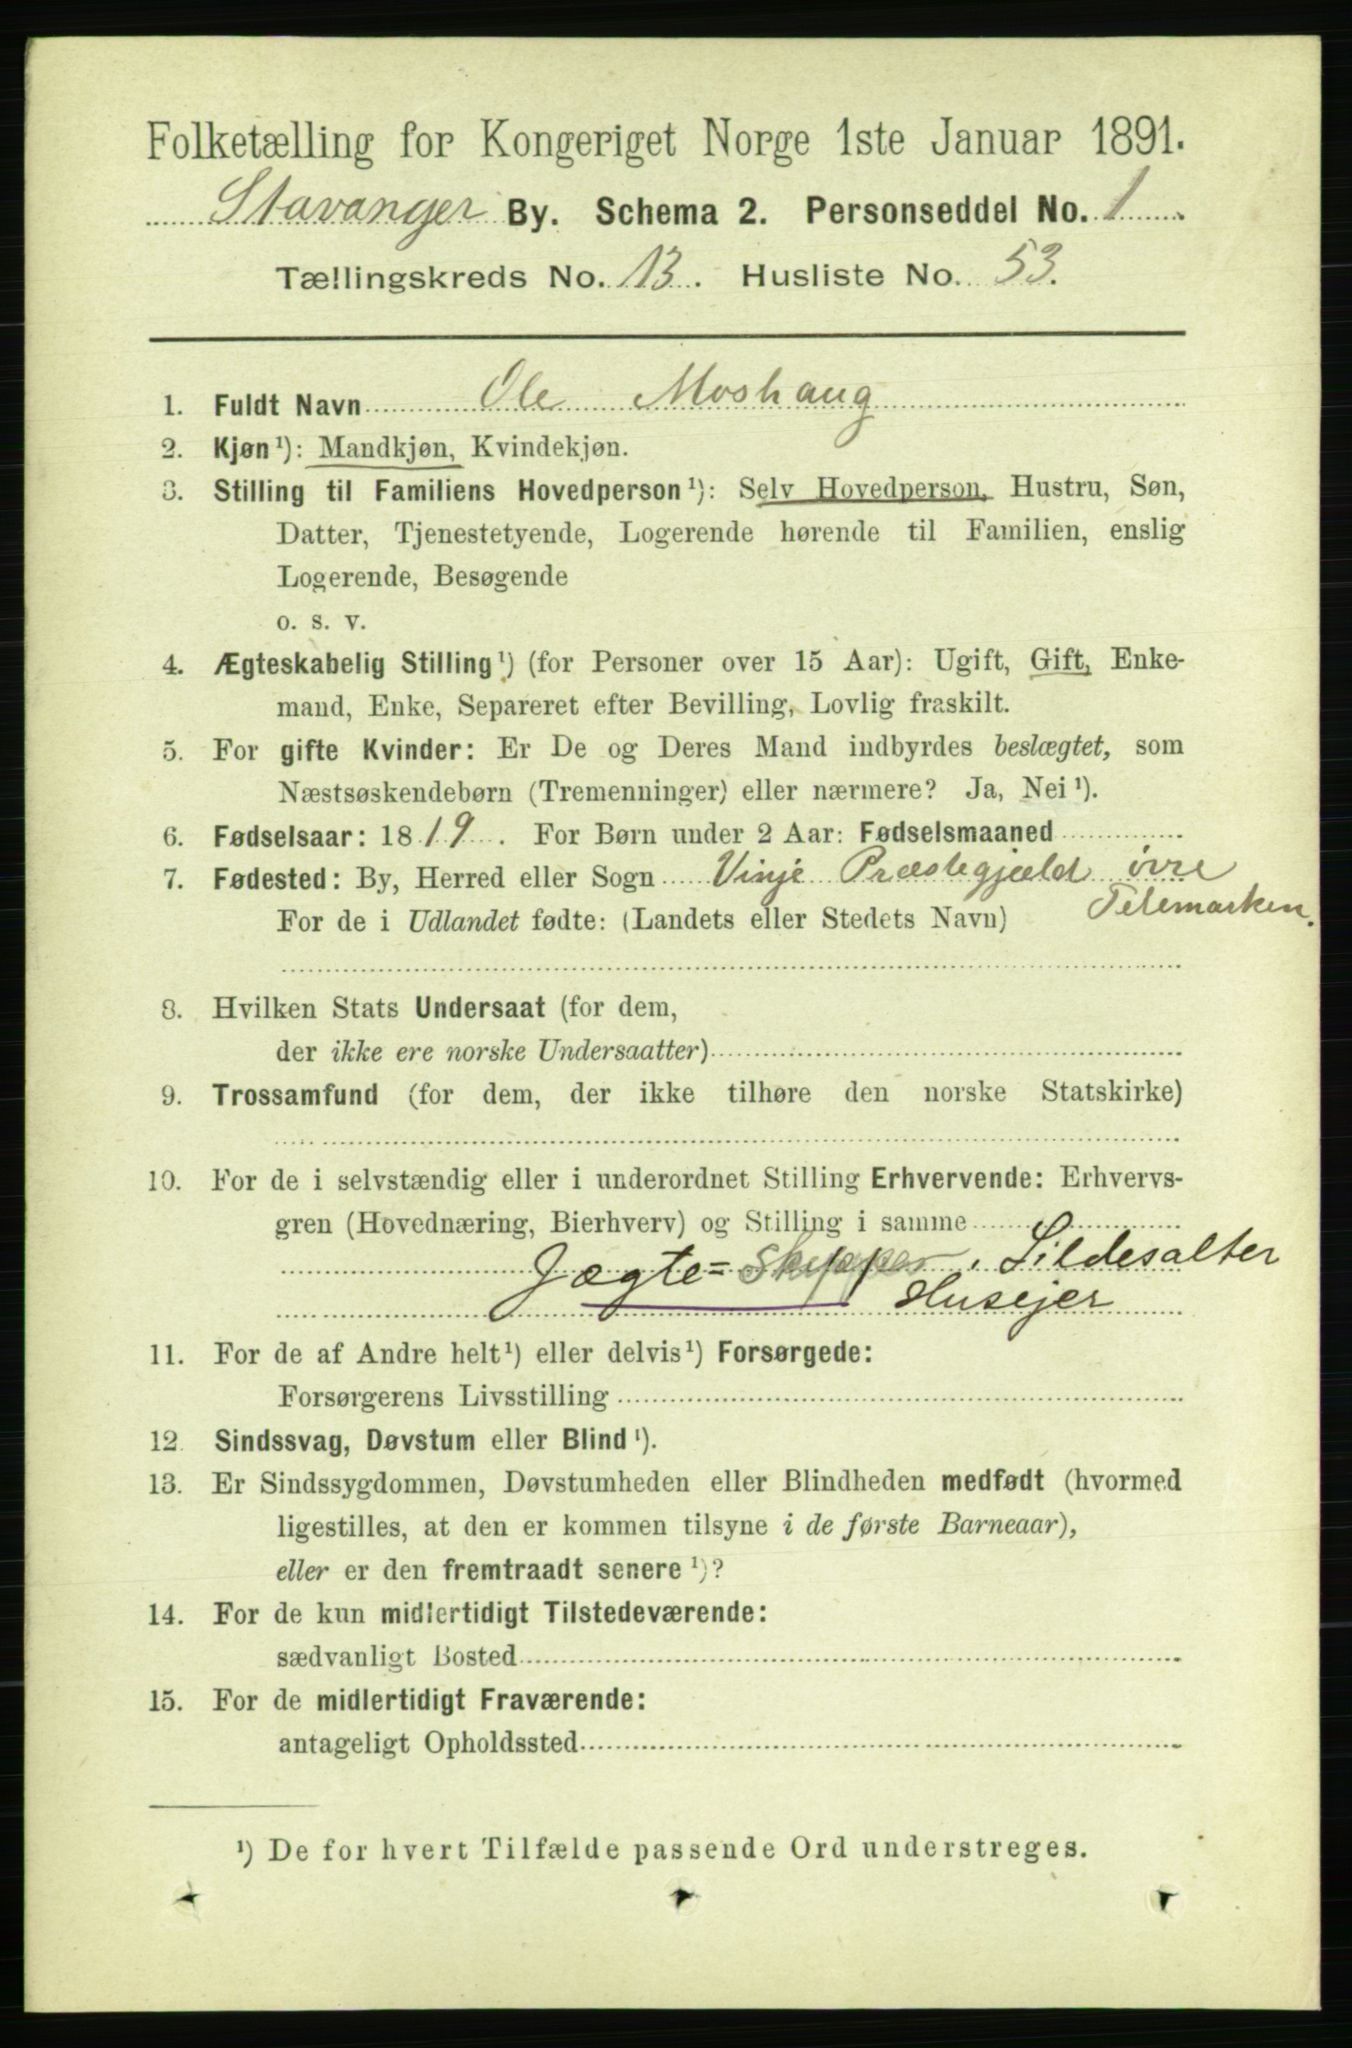 Folketælling for Kongeriget Norge 1ste Januar 1891.
Stavanger By. Schema 2. Personseddel No. 1.
Tællingskreds No. 13. Husliste No. 53.
1. Fuldt Navn Ole Moshaug
2. Kjøn¹): Mandkjøn, Kvindekjøn.
3. Stilling til Familiens Hovedperson¹): Selv Hovedperson, Hustru, Søn,
Datter, Tjenestetyende, Logerende hørende til Familien, enslig
Logerende, Besøgende
o. s. v.
4. Ægteskabelig Stilling¹) (for Personer over 15 Aar): Ugift, Gift, Enke-
mand, Enke, Separeret efter Bevilling, Lovlig fraskilt.
5. For gifte Kvinder: Er De og Deres Mand indbyrdes beslægtet, som
Næstsøskendebørn (Tremenninger) eller nærmere? Ja, Nei¹).
6. Fødselsaar: 1819. For Børn under 2 Aar: Fødselsmaaned
7. Fødested: By, Herred eller Sogn Vinje Præstegjæld övre
Telemarken.
For de i Udlandet fødte: (Landets eller Stedets Navn)
8. Hvilken Stats Undersaat (for dem,
der ikke ere norske Undersaatter)
9. Trossamfund (for dem, der ikke tilhøre den norske Statskirke)
10. For de i selvstændig eller i underordnet Stilling Erhvervende: Erhvervs-
gren (Hovednæring, Bierhverv) og Stilling i samme
Jægte=Skipper, Sildesalter
Husejer
11. For de af Andre helt¹) eller delvis¹) Forsørgede:
Forsørgerens Livsstilling
12 Sindssvag, Døvstum eller Blind¹).
13. Er Sindssygdommen, Døvstumheden eller Blindheden medfødt (hvormed
ligestilles, at den er kommen tilsyne i de første Barneaar),
eller er den fremtraadt senere¹)?
14. For de kun midlertidigt Tilstedeværende:
sædvanligt Bosted
15. For de midlertidigt Fraværende:
antageligt Opholdssted
¹) De for hvert Tilfælde passende Ord understreges.